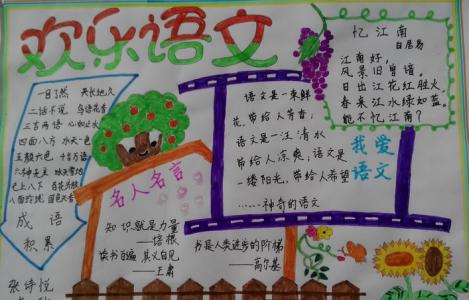 欢乐语文
一目了然 天长地久
二话不说 鸟语花香
三言两语 心如止水
四面八方
五颜六色
七上八下 百花齐放
成语
积累
张诗悦
名人名言
知识就是力量
——培根
读书百遍 其义自见
——王肃
语文是一束鲜
花,带给人芳香,
语文是一汪清水
带给人凉爽,语文是
一缕阳光,带给人希望
……神奇的语文
书是人类进步的阶梯
——高尔基
忆江南
白居易
江南好,
风景旧曾谙。
日出江花红胜火
春来江水绿如蓝,
能不忆江南?
我爱
语文